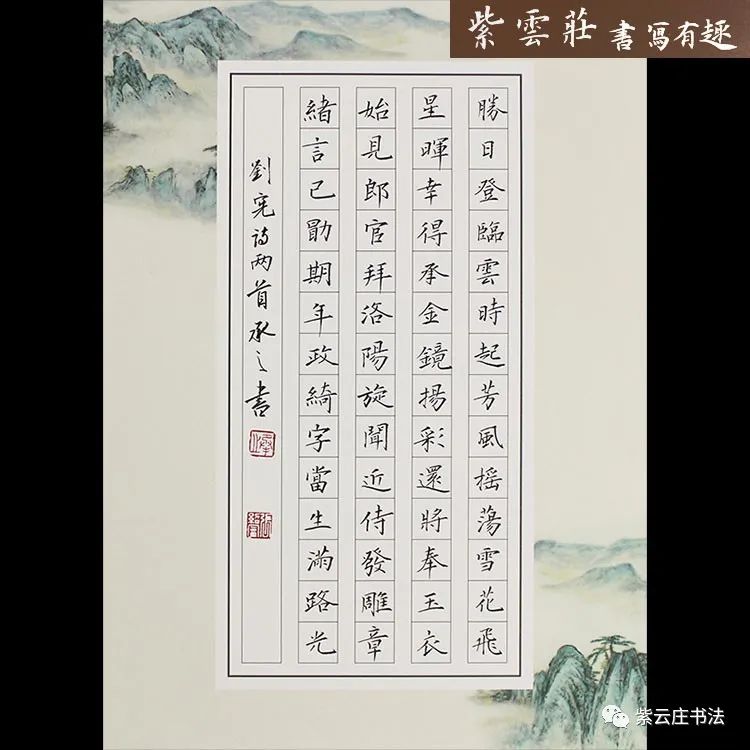 紫雲莊 書寫有趣
勝日登臨雲時起芳風摇蕩雪花飛
星暉幸得承金鏡揚彩還將奉玉衣
始見郎官拜洛陽旋聞近侍發雕章
緒言已勖期年政綺字當生滿路光
劉憲詩两首承之書
紫云庄书法